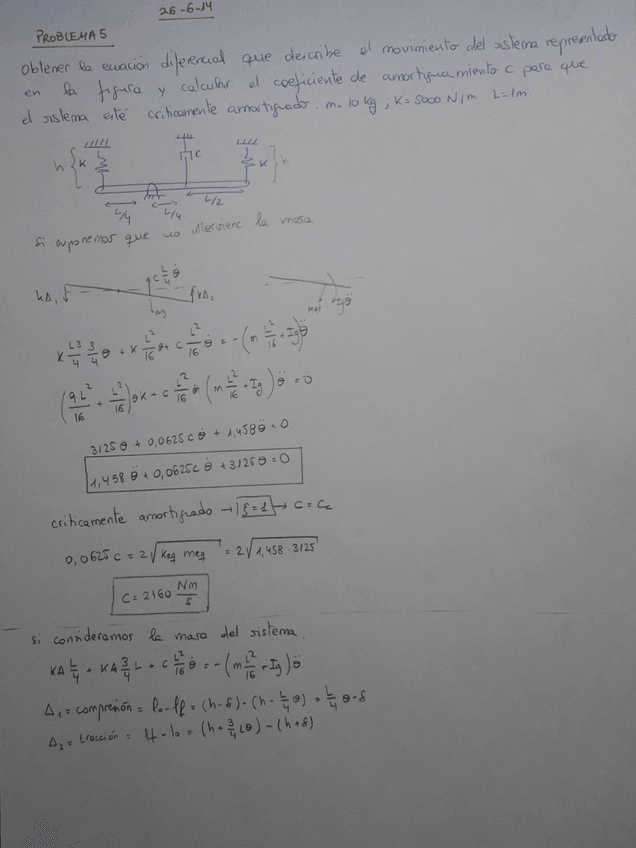 26-6-14
PROBLEMA 5
Obtener la ecuación diferencial que describe el movimiento del sistema representado
en la figura y calcular el coeficiente de amortiguamiento c para que
el sistema esté criticamente amortiguado. m=10 kg; K=5000 N/m L=1m.
h { K
c
K } h
L/4 L/4 L/2
Si suponemos que no interviene la masa
KΔ₁ c L/4 θ̇ KΔ₂
mg
Igθ̈
K L3/4 3/4 θ + K L²/16 θ + c L²/16 θ̇ = -(m L²/16 + Ig)θ̈
(9L²/16 + L²/16)θK + c L²/16 θ̇ (m L²/16 + Ig) θ̈ = 0
3125θ + 0,0625c θ̇ + 1,458θ̈ = 0
1,458 θ̈ + 0,0625c θ̇ + 3125θ = 0
criticamente amortiguado → ξ=1 → C = Cc
0,0625c = 2√Keq meq = 2√1,458·3125
C = 2160 Nm/s
si consideramos la masa del sistema.
KΔ L/4 + KΔ 3/4 L + c L²/16 θ̇ = -(m L²/16 + Ig) θ̈
Δ₁ = compresión = l₀ - lf = (h-δ) - (h - L/4 θ) = L/4 θ - δ
Δ₂ = tracción = lf - l₀ = (h + 3/4 Lθ) - (h+δ)